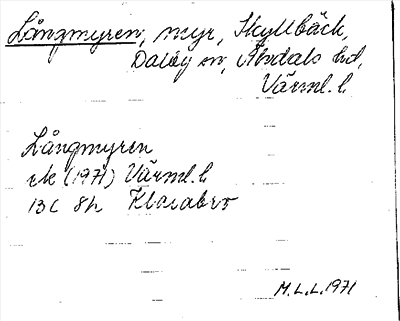 Långmyren, myr, Skyllbäck,
Dalby sn, Älvdals hd,
Värml. l
Långmyren
rk (1971) Värml. l
13C 8h Klarabro
M.L.L. 1971